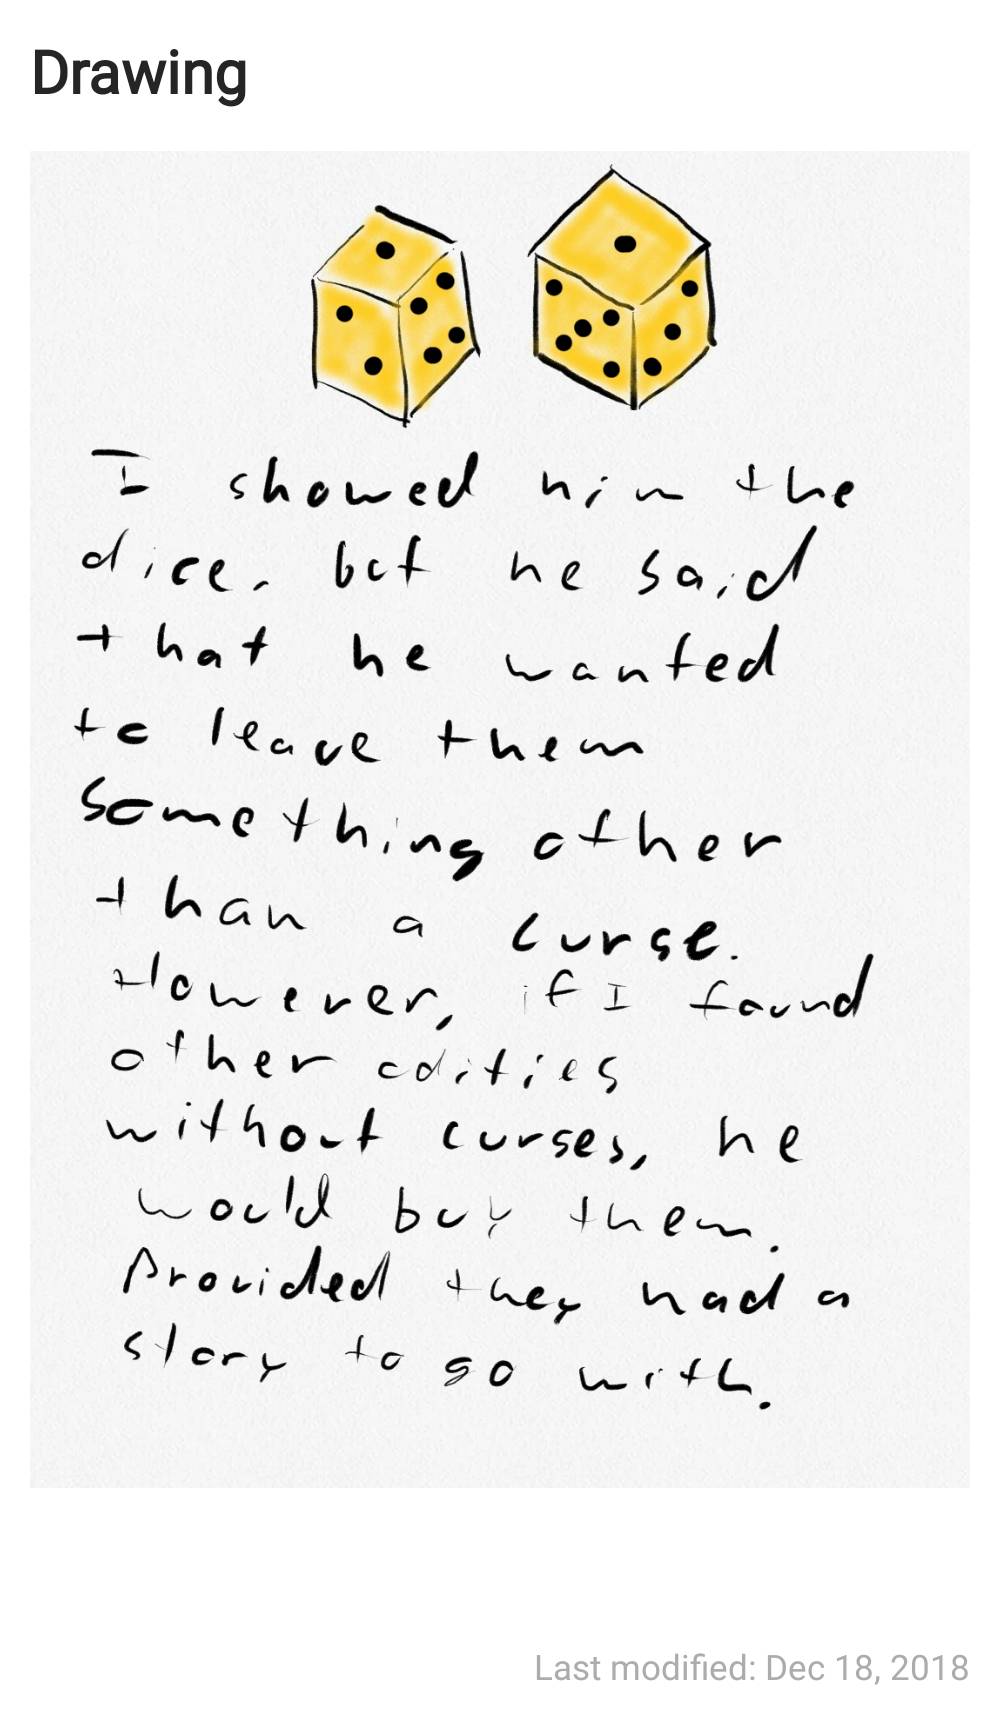 Drawing
I showed him the
dice, but he said
that he wanted
to leave them
something other
than a curse.
However, if I found
other odities
without curses, he
would buy them.
Provided they had a
story to go with.
Last modified: Dec 18, 2018